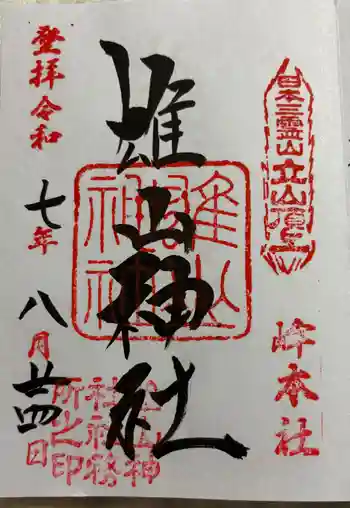 日本三霊山立山頂上
峰本社
雄山神社
雄山神社
雄山神社社務所之印
登拝令和七年八月廿四日